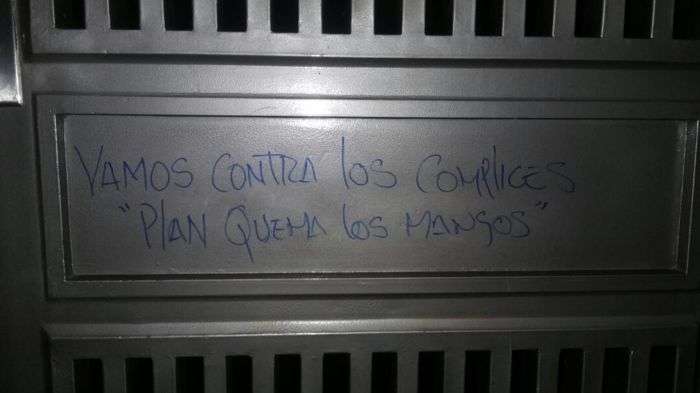 VAMOS CONTRA los COMPlICES
"PlAN QUEMA los MANGOS"